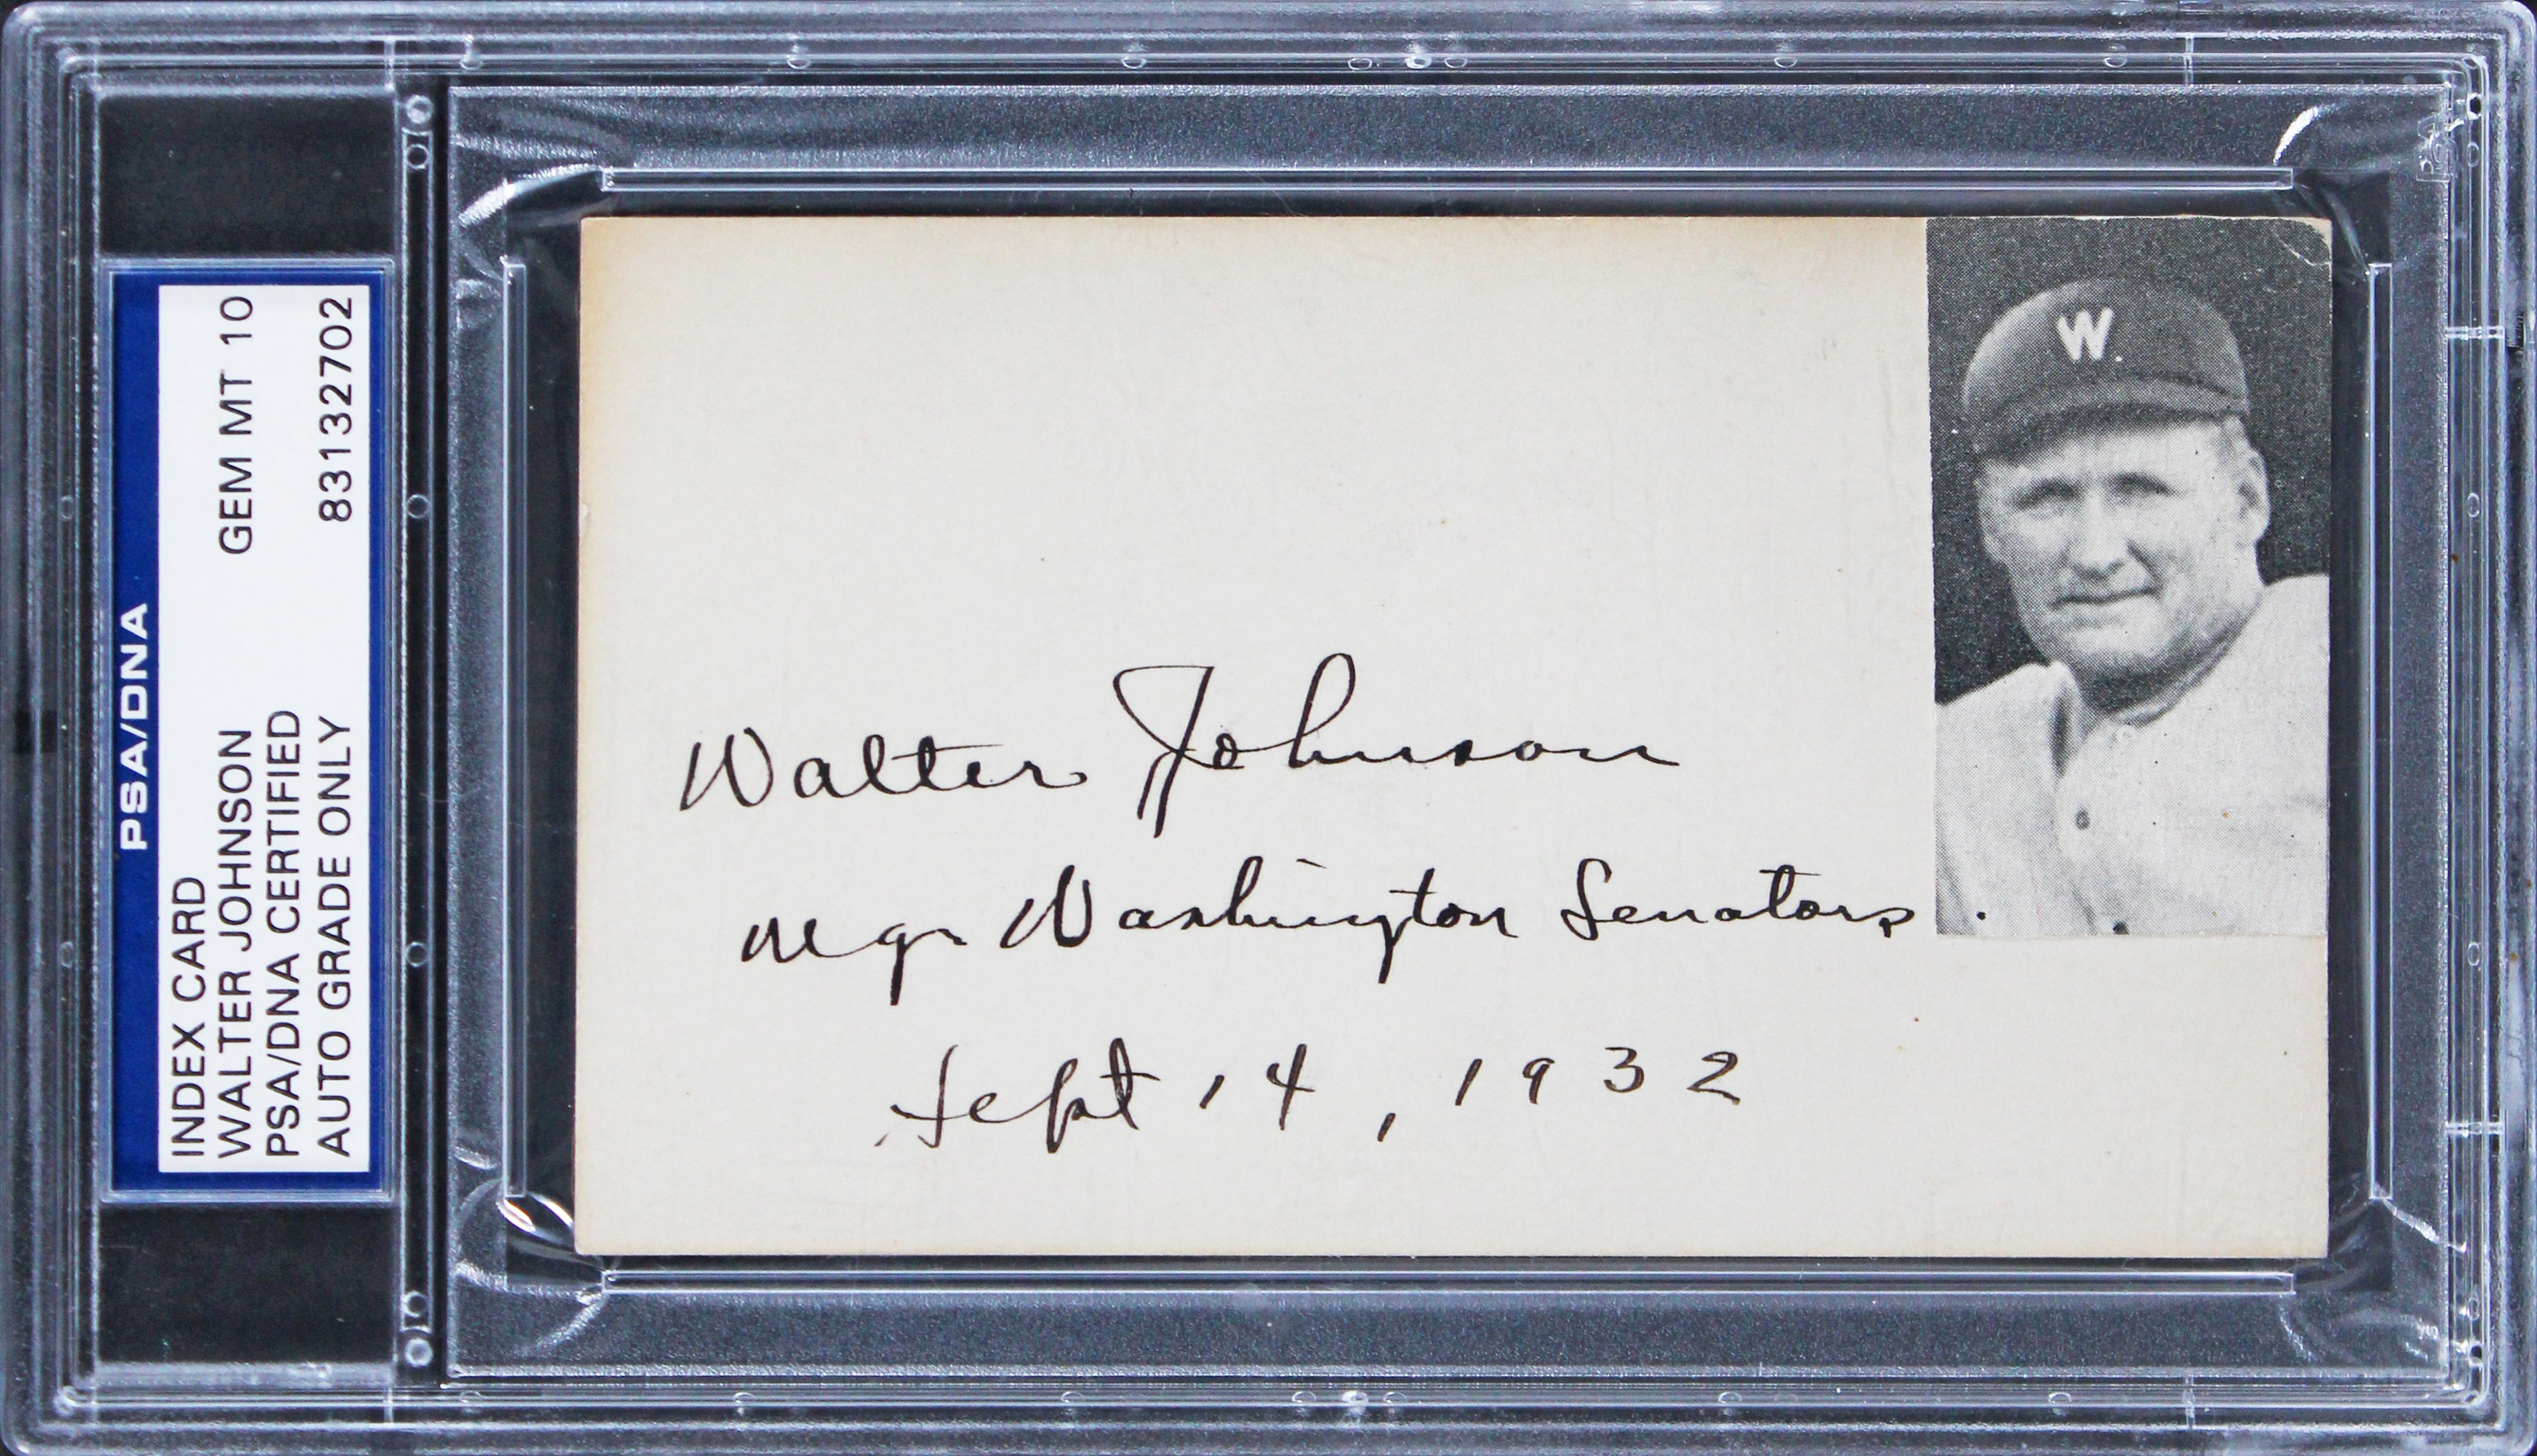 PSA/DNA
INDEX CARD
WALTER JOHNSON GEM MT 10
PSA/DNA CERTIFIED
AUTO GRADE ONLY 83132702
W
Walter Johnson
Mgr Washington Senators.
Sept 14, 1932